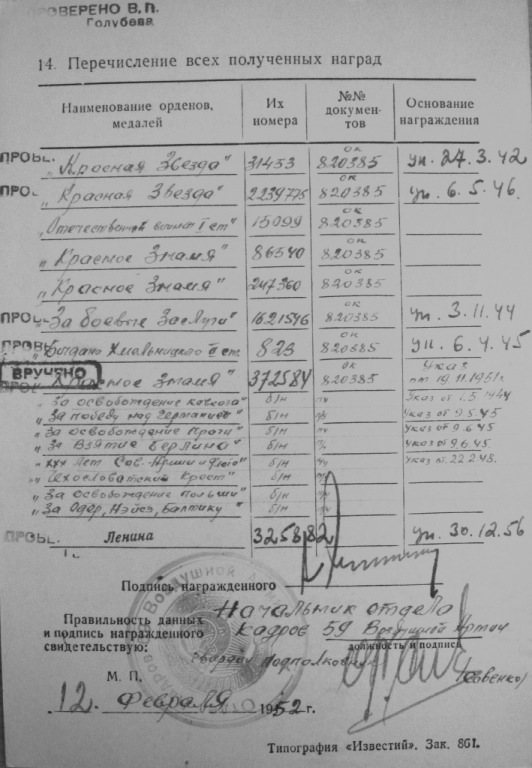 ПРОВЕРЕНО В. П.
Голубева
14. Перечисление всех полученных наград
Наименование орденов, медалей Их номера №№ документов Основание награждения
ПРОВЕ. „Красная Звезда" 31453 ок 820385 ук. 27.3.42
ПРО „Красная Звезда" 2239775 ок 820385 ук. 6.5.46.
„Отечественной войны I ст 15099 ок 820385
„Красное Знамя" 86540 ок 820385
„Красное Знамя" 247360 ок 820385
ПРО „За боевые Заслуги" 1621546 ок 820385 ук. 3.11.44
ПРОВЕ „Богдана Хмельницкого II ст. 823 ок 820385 ук. 6.4.45
ВРУЧЕНО
„Красное Знамя" 372584 820385 Указ от 19.11.1951г.
„За освобождение Кавказа" б/н Указ от 1.5.1944
„За победу над Германией" б/н Указ от 9.5.45
„За освобождение Праги" б/н Указ от 9.6.45
„За Взятие Берлина" б/н Указ от 9.6.45
„XXX Лет Сов. Армии и Флота" б/н Указ от 22.2.48.
„Чехословатский Крест" б/н
„За освобождение Польши" б/н
„За Одер, Нэйсэ, Балтику" б/н
ПРОВЕ. Ленина 325882 ук. 30.12.56
Подпись награжденного
Правильность данных и подпись награжденного свидетельствую:
Начальник отдела
Кадров 59 Воздушной Армии
должность и подпись
гвардии подполковник
М. П.
12. Февраля 1952 г.
Типография «Известий». Зак. 861.